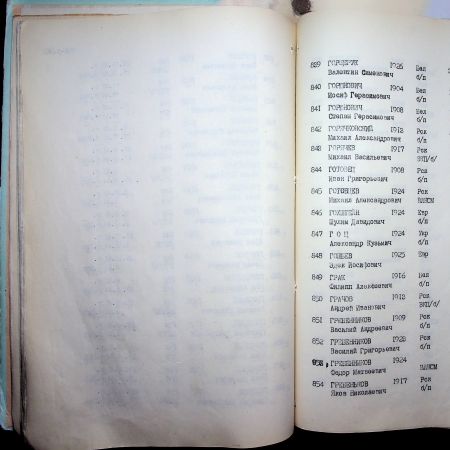 839 ГОРЩЕРИК 1926 Бел
Валентин Семенович б/п
840 ГОРЯНОВИЧ 1904 Бел
Иосиф Герасимович б/п
841 ГОРЯНОВИЧ 1908 Бел
Степан Герасимович б/п
842 1912 Рск
Михаил Александрович б/п
843 ГОРЯЧЕВ 1917 Рск
Михаил Васильевич ВКП/б/
844 1908 Рск
Иван Григорьевич б/п
845 ГОТОВЦЕВ 1924 Рск
Михаил Александрович ВЛКСМ
846 1924 Евр
Шулим Давидович б/п
847 Г О Ц 1924 Укр
Александр Кузьмич б/п
848 1925 Евр
Эдек Иосифович
849 ГРАК 1916 Бел
Филипп Алексеевич б/п
850 ГРАЧОВ 1912 Рск
Андрей Иванович ВКП/б/
851 ГРЕБЕННИКОВ 1909 Рск
Василий Андреевич б/п
852 ГРЕБЕННИКОВ 1922 Рск
Василий Григорьевич б/п
853 ГРЕБЕННИКОВ 1924
Федор Матвеевич ВЛКСМ
854 ГРЕБЕНЬКОВ 1917 Рск
Яков Николаевич б/п